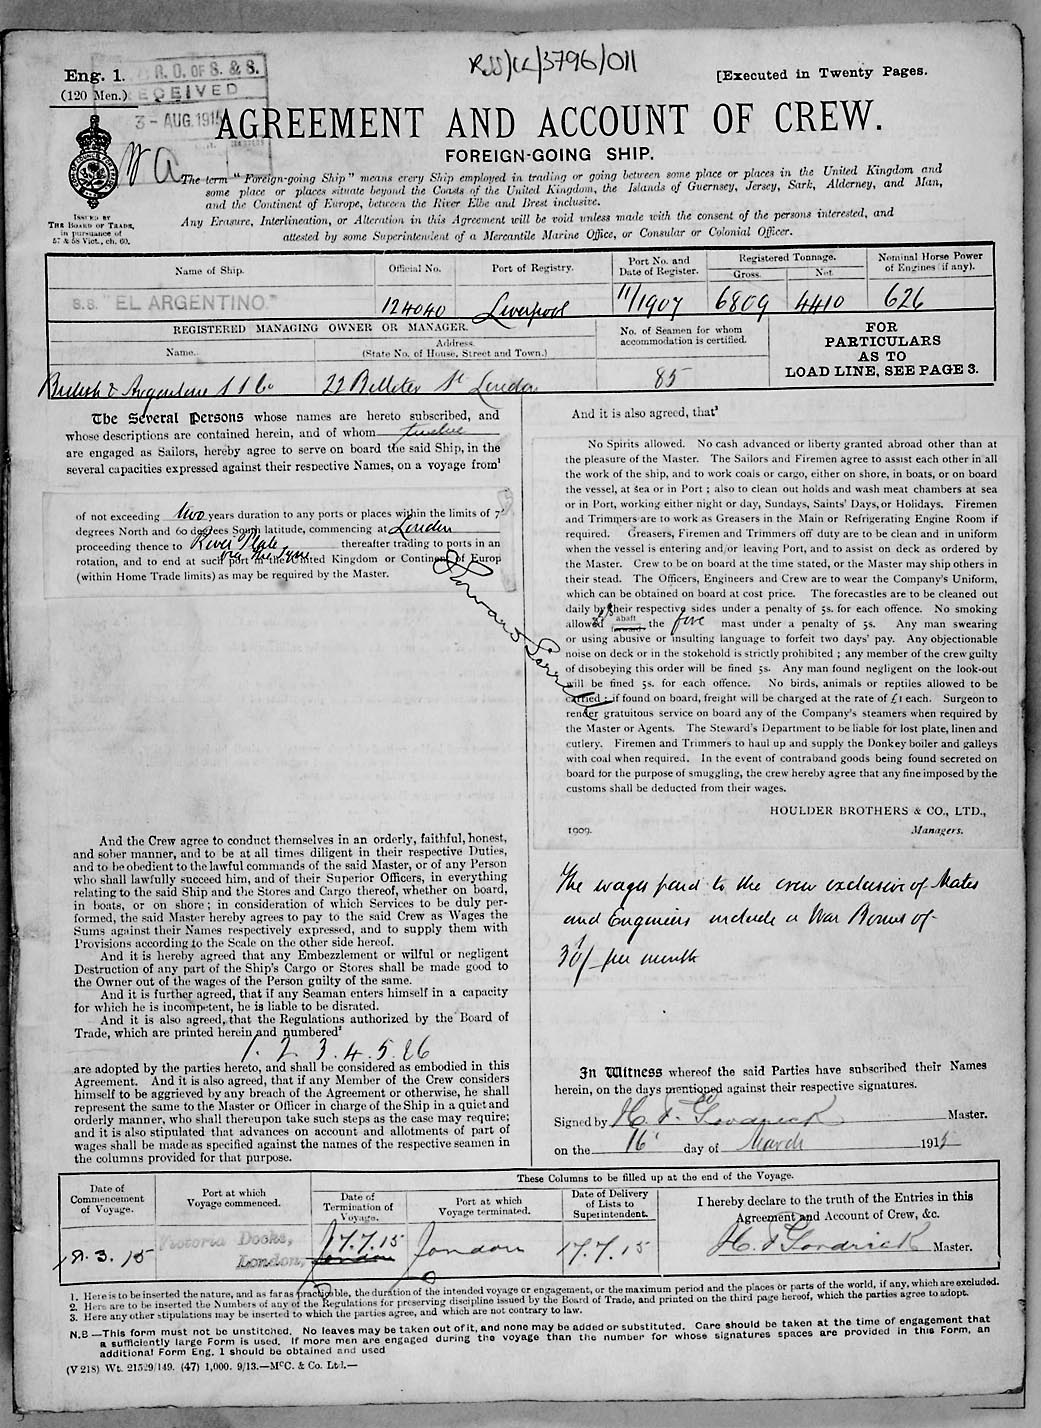 Eng. 1.
(120 Men.)
R. O. OF S. & S.
RECEIVED
3 - AUG. 1915
RSS/CL/3796/011
[Executed in Twenty Pages.
AGREEMENT AND ACCOUNT OF CREW.
FOREIGN-GOING SHIP.
The term "Foreign-going Ship" means every Ship employed in trading or going between some place or places in the United Kingdom and
some place or places situate beyond the Coasts of the United Kingdom, the Islands of Guernsey, Jersey, Sark, Alderney, and Man,
and the Continent of Europe, between the River Elbe and Brest inclusive.
Any Erasure, Interlineation, or Alteration in this Agreement will be void unless made with the consent of the persons interested, and
attested by some Superintendent of a Mercantile Marine Office, or Consular or Colonial Officer.
ISSUED BY
THE BOARD OF TRADE,
in pursuance of
57 & 58 Vict., ch. 60.
Name of Ship.
Official No.
Port of Registry.
Port No. and
Date of Register.
Registered Tonnage.
Gross.
Net.
Nominal Horse Power
of Engines (if any).
S.S. "EL ARGENTINO."
124040
Liverpool
11/1907
6809
4410
626
REGISTERED MANAGING OWNER OR MANAGER.
Name.
Address.
(State No. of House, Street and Town.)
No. of Seamen for whom
accommodation is certified.
FOR
PARTICULARS
AS TO
LOAD LINE, SEE PAGE 3.
British & Argentine S S Co
22 Billiter St London
85
The Several Persons whose names are hereto subscribed, and
whose descriptions are contained herein, and of whom twelve
are engaged as Sailors, hereby agree to serve on board the said Ship, in the
several capacities expressed against their respective Names, on a voyage from¹
of not exceeding two years duration to any ports or places within the limits of 7
degrees North and 60 degrees South latitude, commencing at London
proceeding thence to River Plate thereafter trading to ports in an
via the Tyne
rotation, and to end at such port in the United Kingdom or Continent of Europ
(within Home Trade limits) as may be required by the Master.
And the Crew agree to conduct themselves in an orderly, faithful, honest,
and sober manner, and to be at all times diligent in their respective Duties,
and to be obedient to the lawful commands of the said Master, or of any Person
who shall lawfully succeed him, and of their Superior Officers, in everything
relating to the said Ship and the Stores and Cargo thereof, whether on board,
in boats, or on shore; in consideration of which Services to be duly per-
formed, the said Master hereby agrees to pay to the said Crew as Wages the
Sums against their Names respectively expressed, and to supply them with
Provisions according to the Scale on the other side hereof.
And it is hereby agreed that any Embezzlement or wilful or negligent
Destruction of any part of the Ship's Cargo or Stores shall be made good to
the Owner out of the wages of the Person guilty of the same.
And it is further agreed, that if any Seaman enters himself in a capacity
for which he is incompetent, he is liable to be disrated.
And it is also agreed, that the Regulations authorized by the Board of
Trade, which are printed herein and numbered²
1. 2. 3. 4. 5. & 6
are adopted by the parties hereto, and shall be considered as embodied in this
Agreement. And it is also agreed, that if any Member of the Crew considers
himself to be aggrieved by any breach of the Agreement or otherwise, he shall
represent the same to the Master or Officer in charge of the Ship in a quiet and
orderly manner, who shall thereupon take such steps as the case may require;
and it is also stipulated that advances on account and allotments of part of
wages shall be made as specified against the names of the respective seamen in
the columns provided for that purpose.
And it is also agreed, that³
No Spirits allowed. No cash advanced or liberty granted abroad other than at
the pleasure of the Master. The Sailors and Firemen agree to assist each other in all
the work of the ship, and to work coals or cargo, either on shore, in boats, or on board
the vessel, at sea or in Port; also to clean out holds and wash meat chambers at sea
or in Port, working either night or day, Sundays, Saints' Days, or Holidays. Firemen
and Trimmers are to work as Greasers in the Main or Refrigerating Engine Room if
required. Greasers, Firemen and Trimmers off duty are to be clean and in uniform
when the vessel is entering and/or leaving Port, and to assist on deck as ordered by
the Master. Crew to be on board at the time stated, or the Master may ship others in
their stead. The Officers, Engineers and Crew are to wear the Company's Uniform,
which can be obtained on board at cost price. The forecastles are to be cleaned out
daily by their respective sides under a penalty of 5s. for each offence. No smoking
allowed abaft forward the fore mast under a penalty of 5s. Any man swearing
or using abusive or insulting language to forfeit two days' pay. Any objectionable
noise on deck or in the stokehold is strictly prohibited; any member of the crew guilty
of disobeying this order will be fined 5s. Any man found negligent on the look-out
will be fined 5s. for each offence. No birds, animals or reptiles allowed to be
carried; if found on board, freight will be charged at the rate of £1 each. Surgeon to
render gratuitous service on board any of the Company's steamers when required by
the Master or Agents. The Steward's Department to be liable for lost plate, linen and
cutlery. Firemen and Trimmers to haul up and supply the Donkey boiler and galleys
with coal when required. In the event of contraband goods being found secreted on
board for the purpose of smuggling, the crew hereby agree that any fine imposed by the
customs shall be deducted from their wages.
HOULDER BROTHERS & CO., LTD.,
1909.
Managers.
The wages paid to the crew exclusive of Mates
and Engineers include a War Bonus of
30/ per month
In Witness whereof the said Parties have subscribed their Names
herein, on the days mentioned against their respective signatures.
Signed by H. F. Goodrick Master.
on the 16 day of March 1915
Date of
Commencement
of Voyage.
Port at which
Voyage commenced.
These Columns to be filled up at the end of the Voyage.
Date of
Termination of
Voyage.
Port at which
Voyage terminated.
Date of Delivery
of Lists to
Superintendent.
I hereby declare to the truth of the Entries in this
Agreement and Account of Crew, &c.
Victoria Docks,
London,
17.7.15
London
London
17.7.15
H. F. Goodrick Master.
1. Here is to be inserted the nature, and as far as practicable, the duration of the intended voyage or engagement, or the maximum period and the places or parts of the world, if any, which are excluded.
2. Here are to be inserted the Numbers of any of the Regulations for preserving discipline issued by the Board of Trade, and printed on the third page hereof, which the parties agree to adopt.
3. Here any other stipulations may be inserted to which the parties agree, and which are not contrary to law.
N.B—This form must not be unstitched. No leaves may be taken out of it, and none may be added or substituted. Care should be taken at the time of engagement that
a sufficiently large Form is used. If more men are engaged during the voyage than the number for whose signatures spaces are provided in this Form, an
additional Form Eng. 1 should be obtained and used
(V 218) Wt. 21529/149. (47) 1,000. 9/13.—McC. & Co. Ltd.—